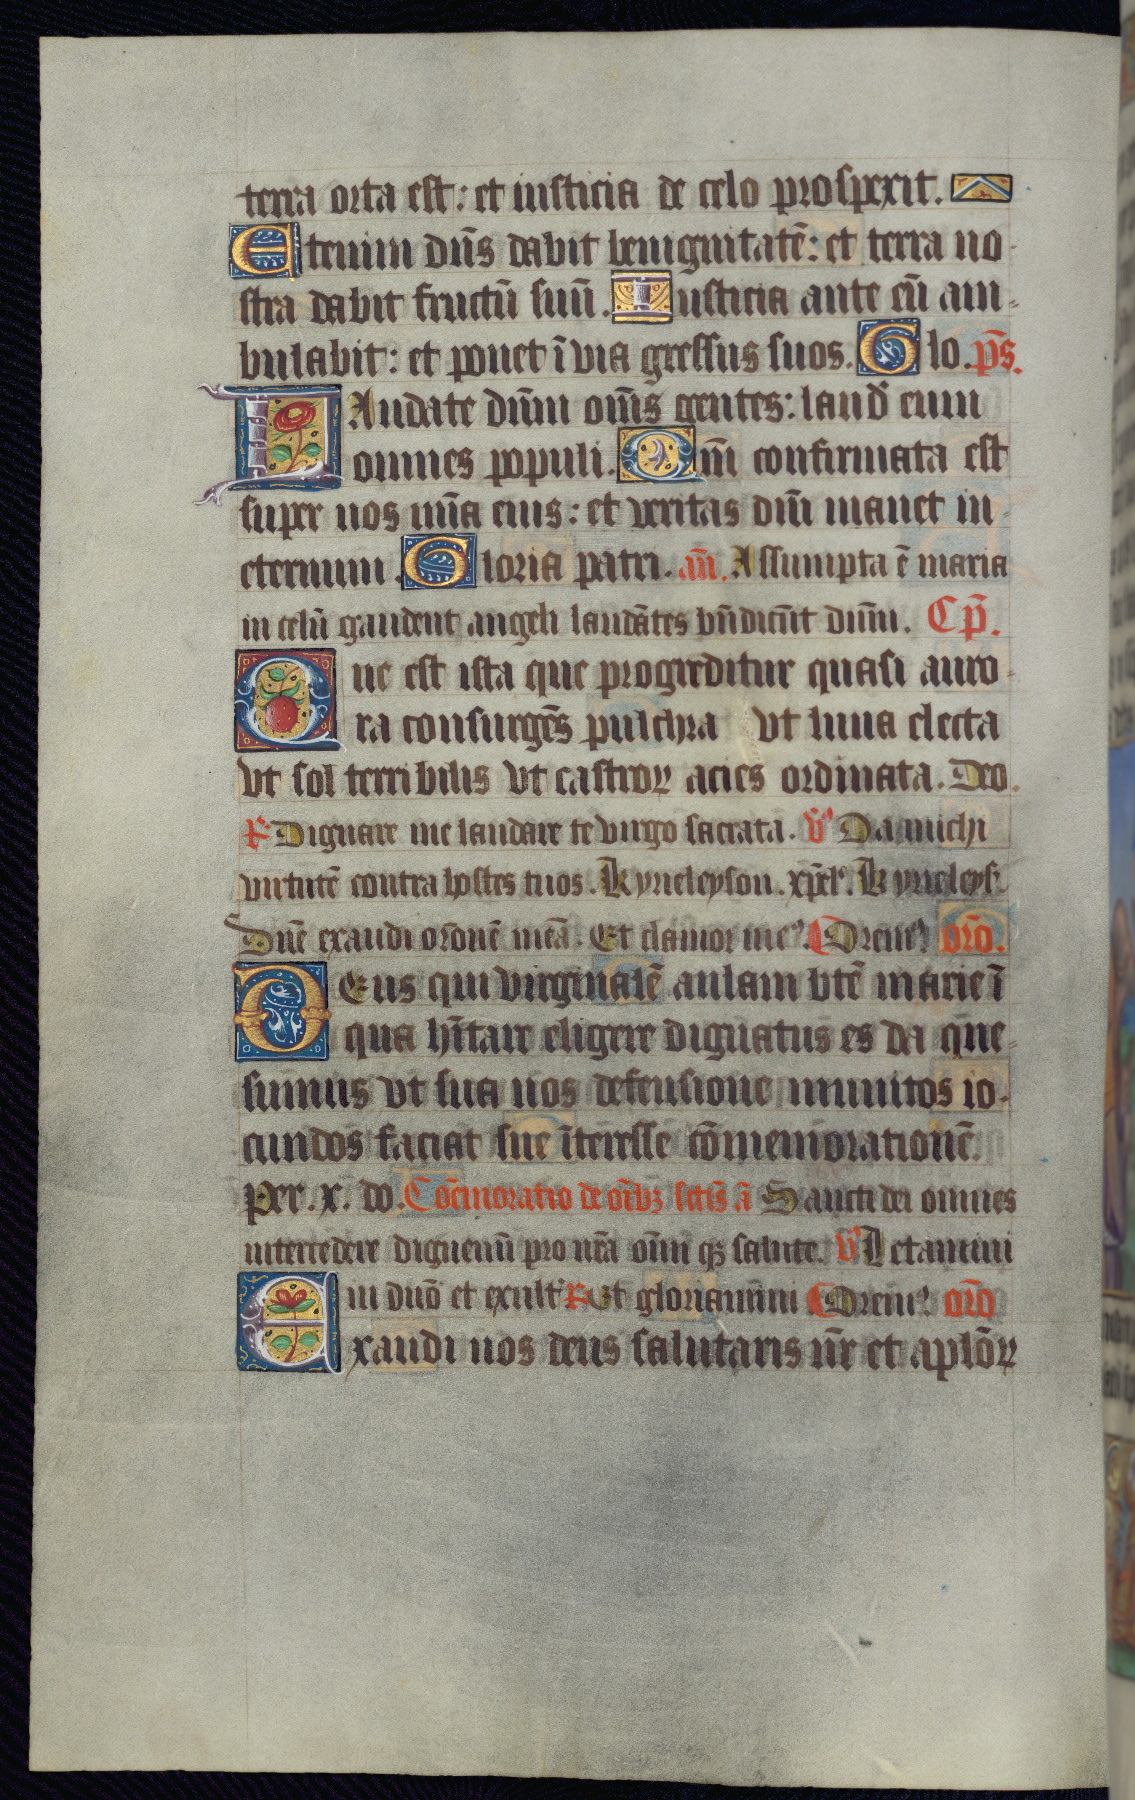 terra orta est: et iusticia de celo prospexit.
Etenim dn̄s dabit benignitatē: et terra no-
stra dabit fructū suū. Iusticia ante eū am-
bulabit: et ponet ī via gressus suos. Glo. p̄s.
LAudate dn̄m om̄s gentes: laud' eum
omnes populi. Qm̄ confirmata est
super nos mīa eius: et veritas dn̄i manet in
eternum. Gloria patri. an̄. Assumpta ē maria
in celū gaudent angeli laudātes bn̄dicūt dnm̄. Cp̄.
Que est ista que progreditur quasi auro-
ra consurgēs pulchra vt luna electa
vt sol terribilis vt castroꝝ acies ordinata. Deo.
R Dignare me laudare te virgo sacrata. v̄ Da michi
virtutē contra hostes tuos. Kyrieleyson. xp̄el'. Kyrieleys'.
Dn̄e exaudi or̄onē meā. Et clamor me⁹. Orem⁹ or̄o.
DEus qui virginalē aulam btē marie ī
qua hītare eligere dignatus es da que-
sumus vt sua nos defensione munitos io-
cundos faciat sue īteresse cōmemorationē.
Per. x. do. Cōēmoratio de oībꝫ sctīs ā Sancti dei omnes
intercedere dignemī pro nrā oīm qꝫ salute. v̄ Letamini
in dnō et exult' R Et gloriamini Orem⁹ or̄o
Exaudi nos deus salutaris nr̄ et aplōꝝ